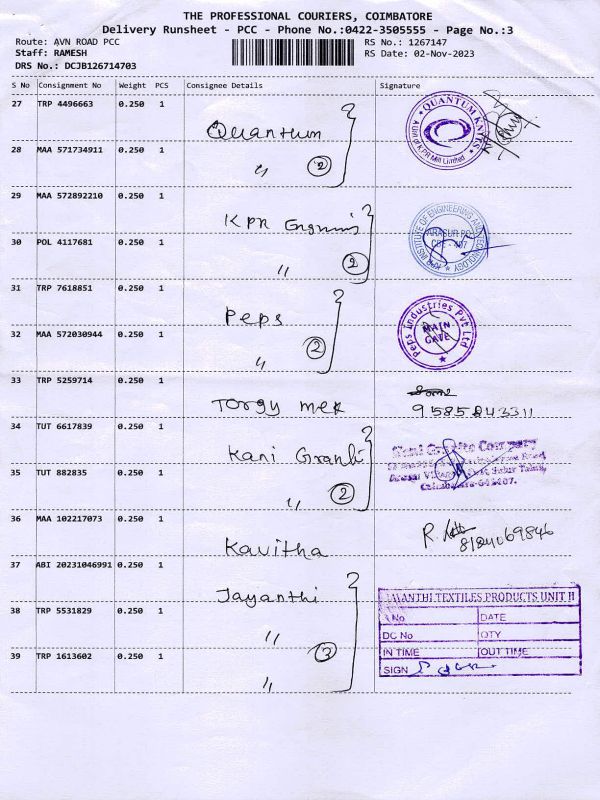 THE PROFESSIONAL COURIERS, COIMBATORE
Delivery Runsheet - PCC - Phone No.:0422-3505555 - Page No.:3
Route: AVN ROAD PCC
RS No.: 1267147
Staff: RAMESH
RS Date: 02-Nov-2023
DRS No.: DCJB126714703
S No Consignment No Weight PCS Consignee Details Signature
27 TRP 4496663 0.250 1 Quantum
QUANTUM KNITS
A Div of K.P.R Mill Limited
28 MAA 571734911 0.250 1 " 2
29 MAA 572892210 0.250 1 KPR
KPR INSTITUTE OF ENGINEERING AND TECHNOLOGY
ARASUR PO
CBE - 407
30 POL 4117681 0.250 1 " 2
31 TRP 7618851 0.250 1 Peps
Peps Industries Pvt Ltd
MAIN GATE
32 MAA 572030944 0.250 1 " 2
33 TRP 5259714 0.250 1 Torgy mek
9585243311
34 TUT 6617839 0.250 1 Kani
35 TUT 882835 0.250 1 " 2
Coimbatore-641407.
36 MAA 102217073 0.250 1 Kavitha
R.
37 ABI 20231046991 0.250 1 Jayanthi
JAYANTHI TEXTILES PRODUCTS UNIT II
38 TRP 5531829 0.250 1 "
No DATE
DC No QTY
39 TRP 1613602 0.250 1 " 3
IN TIME OUT TIME
SIGN